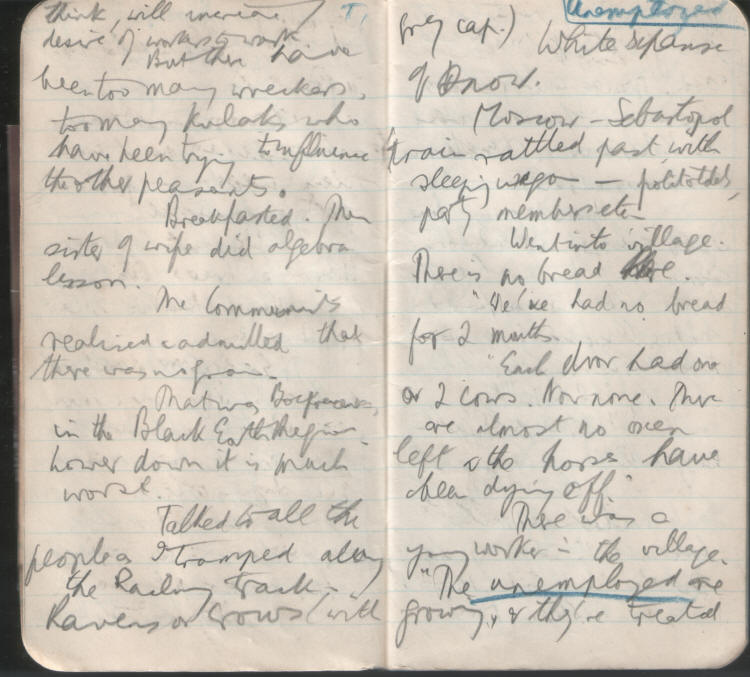 think, will increase T,
desire of workers to work
But there have
been too many wreckers,
too many kulaks who
have been trying to influence
the other peasants.
Breakfasted. Then
sister of wife did algebra
lesson.
The Communists
realised & admitted that
there was no grain.
That was
in the Black Earth Region.
Lower down it is much
worse.
Talked to all the
peoples I tramped along
the Railway Track.
Ravens or crows (with
Unemployed
grey cap.)
White expanse
of snow.
Moscow – Sebastopol
train rattled past, with
sleeping wagon — politotdels,
party members etc
Went into village.
There is no bread here.
"We've had no bread
for 2 months.
"Each dvor had one
or 2 cows. Now none. There
are almost no oxen
left & the horses have
been dying off."
There was a
young worker in the village.
"The unemployed are
growing, & they're treated